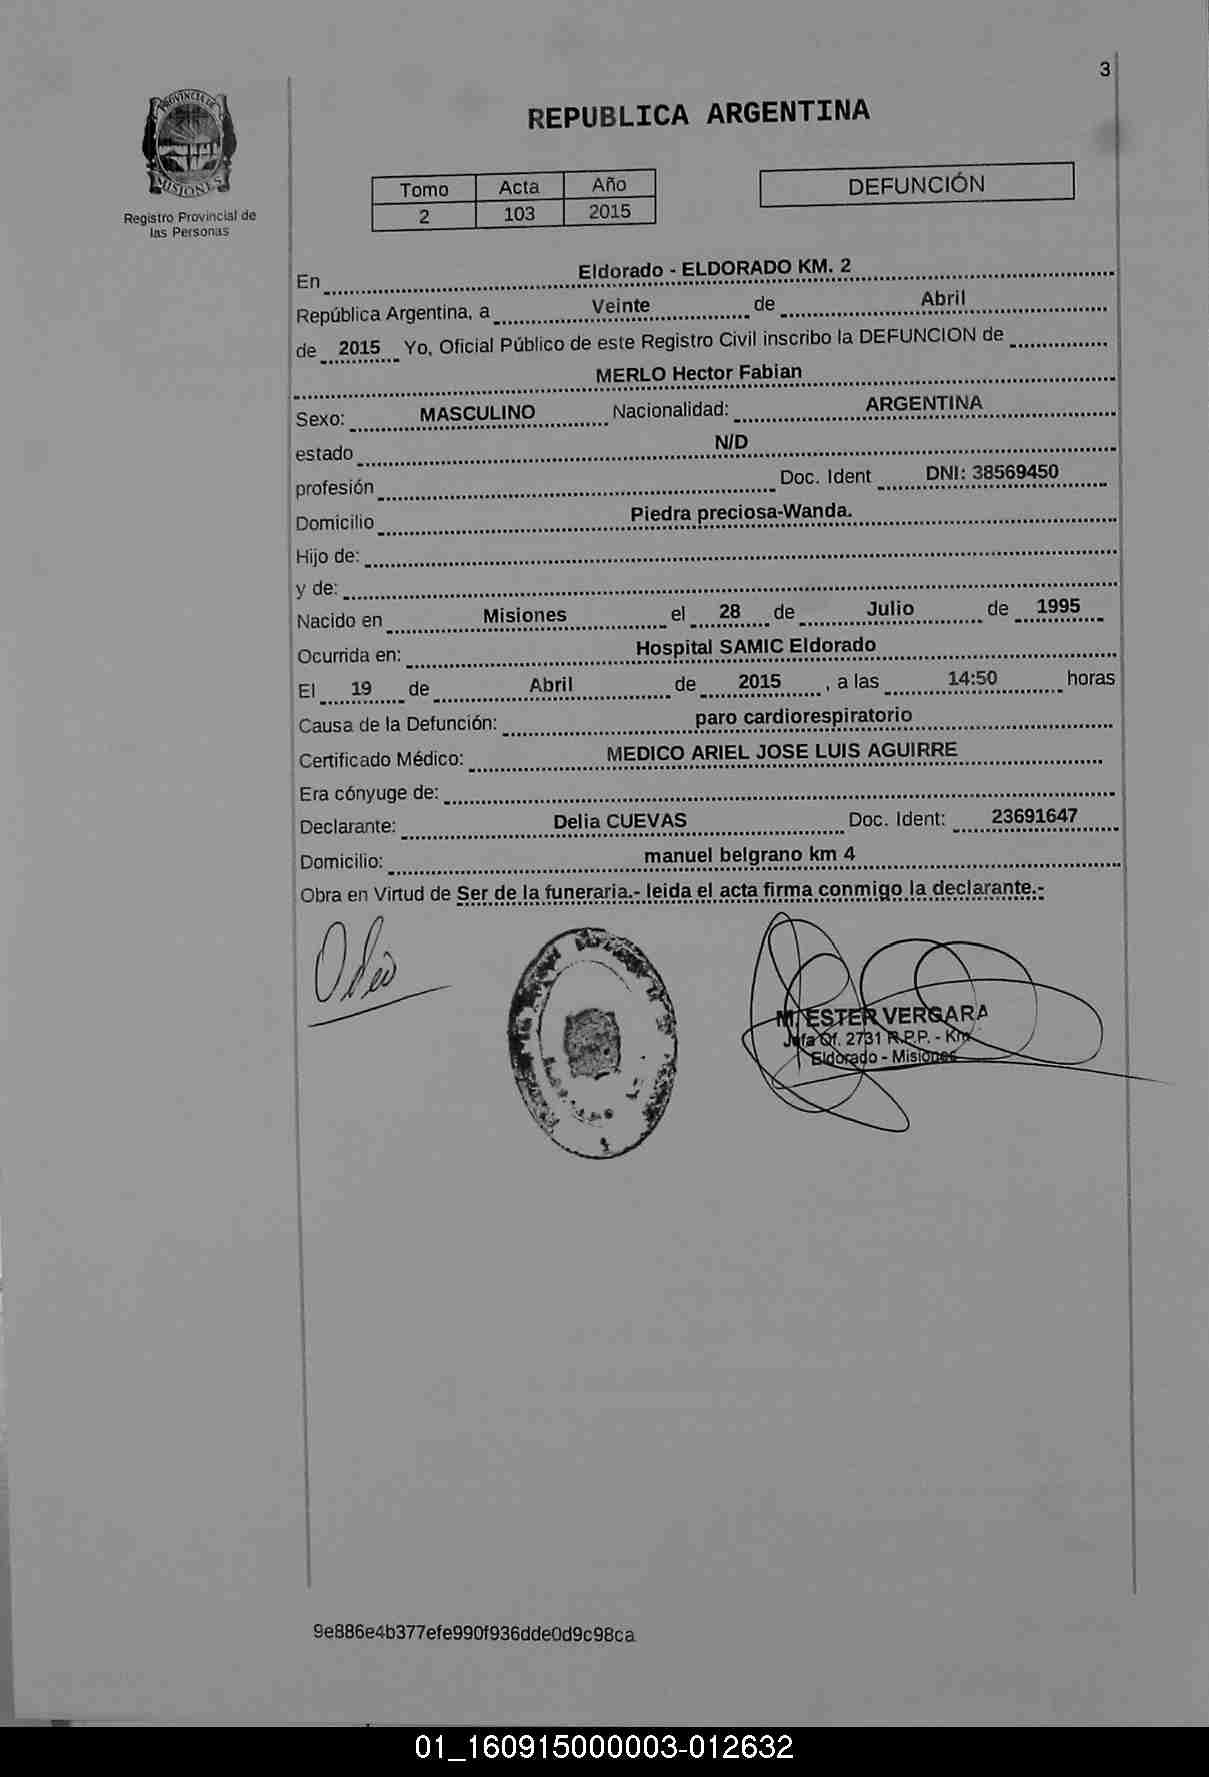 3
PROVINCIA DE
MISIONES
Registro Provincial de
las Personas
REPUBLICA ARGENTINA
Tomo Acta Año
2 103 2015
DEFUNCIÓN
En Eldorado - ELDORADO KM. 2
República Argentina, a Veinte de Abril
de 2015 Yo, Oficial Público de este Registro Civil inscribo la DEFUNCION de
MERLO Hector Fabian
Sexo: MASCULINO Nacionalidad: ARGENTINA
estado N/D
profesión Doc. Ident DNI: 38569450
Domicilio Piedra preciosa-Wanda.
Hijo de:
y de:
Nacido en Misiones el 28 de Julio de 1995
Ocurrida en: Hospital SAMIC Eldorado
El 19 de Abril de 2015, a las 14:50 horas
Causa de la Defunción: paro cardiorespiratorio
Certificado Médico: MEDICO ARIEL JOSE LUIS AGUIRRE
Era cónyuge de:
Declarante: Delia CUEVAS Doc. Ident: 23691647
Domicilio: manuel belgrano km 4
Obra en Virtud de Ser de la funeraria.- leida el acta firma conmigo la declarante.-
M. ESTER VERGARA
Jefa Of. 2731 R.P.P. - Km
Eldorado - Misiones
9e886e4b377efe990f936dde0d9c98ca
01_160915000003-012632